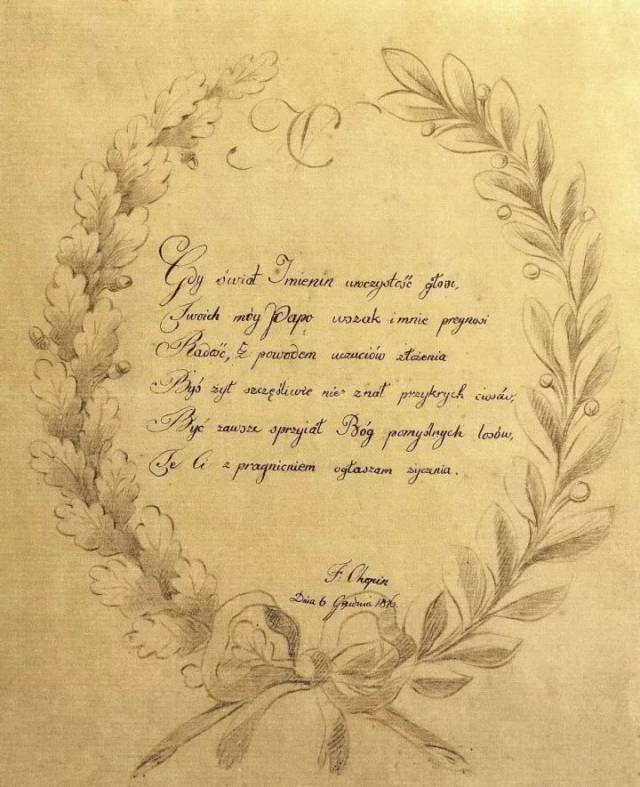 Gdy świat Imienin uroczystość głosi,
Twoich móy Papo wszak i mnie przynosi
Radość, z powodem uczuciów złożenia
Byś żył szczęśliwie nie znał przykrych ciosów,
Być zawsze sprzyiał Bóg pomyślnych losów,
Te Ci z pragnieniem ogłaszam życzenia.
F. Chopin
Dnia 6 Grudnia 1816.